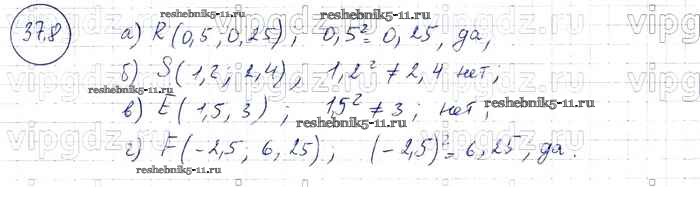 37.8
reshebnik5-11.ru
reshebnik5-11.ru
а) R(0,5; 0,25); 0,5² = 0,25, да,
vipgdz.ru vipgdz.ru vipgdz.ru
б) S(1,2; 2,4), 1,2² ≠ 2,4 нет;
reshebnik5-11.ru
reshebnik5-11.ru
в) E(1,5, 3); 1,5² ≠ 3; нет;
reshebnik5-11.ru
vipgdz.ru vipgdz.ru vipgdz.ru
г) F(-2,5; 6,25), (-2,5)² = 6,25, да.
reshebnik5-11.ru